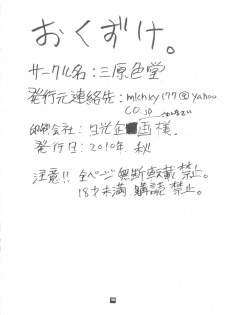 おくずけ。
サークル名：三原色堂
発行元連絡先：mlchxy177@yahoo.
co.jp
印刷会社：日光企画様.
発行日：2010年.秋
注意!! 全ページ無断転載禁止。
18才未満.購読禁止。